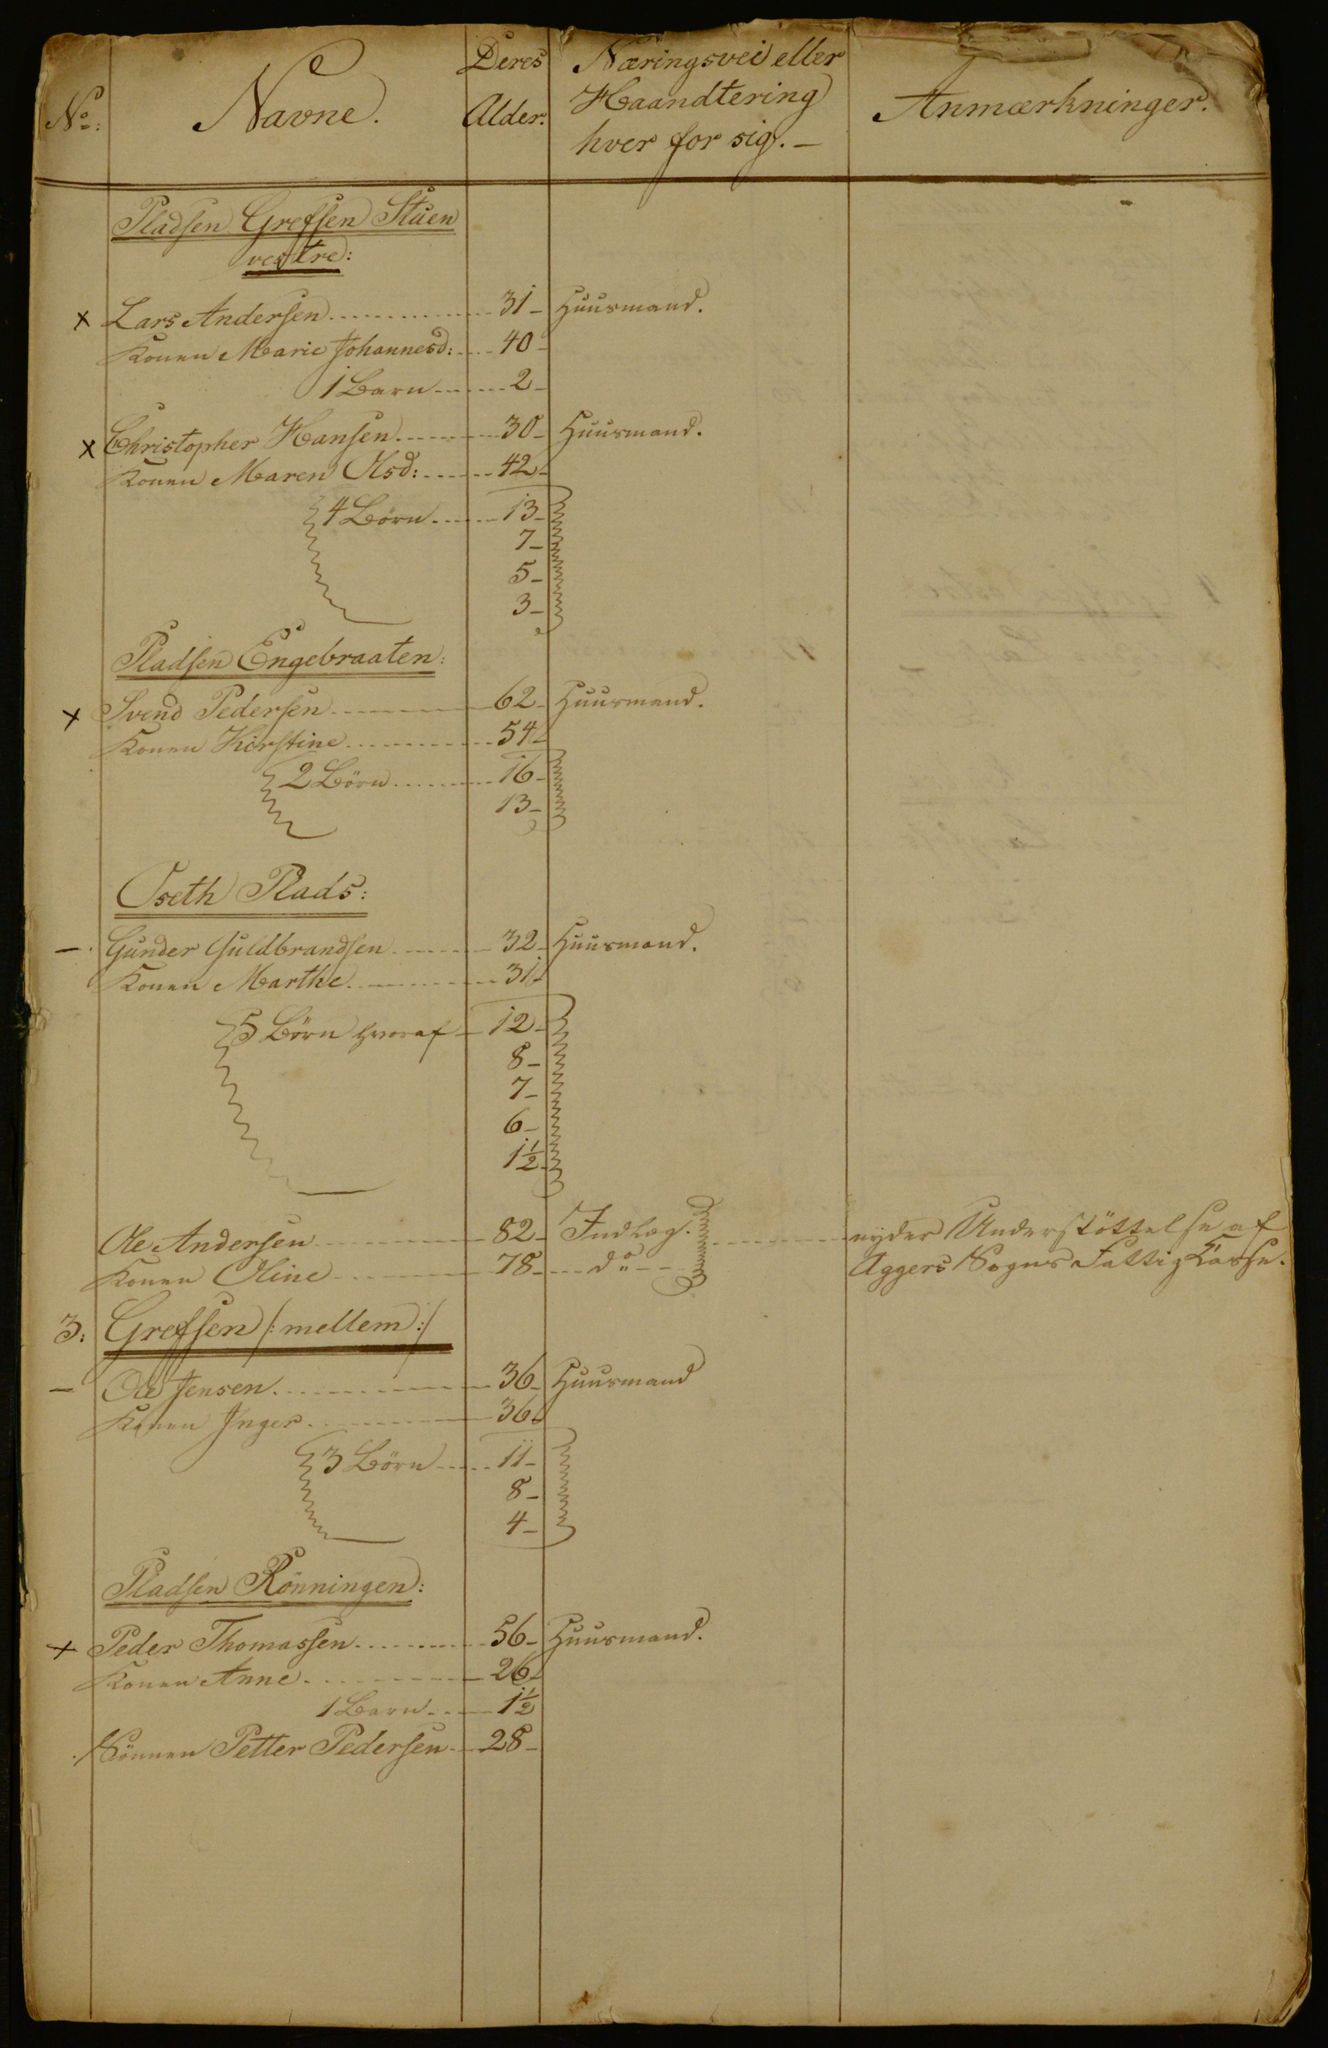 No: Navne. Deres Alder. Næringsvei eller Haandtering hver for sig. — Anmærkninger.
Pladsen Grefsen Stuen
vestre:
x Lars Andersen 31 - Huusmand.
Konen Marie Johannesd: 40 -
1 Barn 2 -
x Christopher Hansen 30 - Huusmand.
Konen Maren Olsd: 42 -
4 Börn 13 -
7 -
5 -
3 -
Pladsen Engebraaten:
x Svend Pedersen 62 - Huusmand.
Konen Kirstine 54 -
2 Börn 16 -
13 -
Oseth Plads:
— Gunder Guldbrandsen 32 - Huusmand.
Konen Marthe 31 -
5 Börn hvoraf 12 -
8 -
7 -
6 -
1½ -
Ole Andersen 82 - Indlæg. nyder Understöttelse af
Konen Oline 78 - do Aggers Sogns Fattig Casse.
3: Grefsen /: mellem :/
— Ole Jensen 36 - Huusmand
Konen Inger 36
3 Börn 11 -
8 -
4 -
Pladsen Rönningen:
x Peder Thomassen 56 - Huusmand.
Konen Anne 26 -
1 Barn 1½
Sönnen Petter Pedersen 28 -